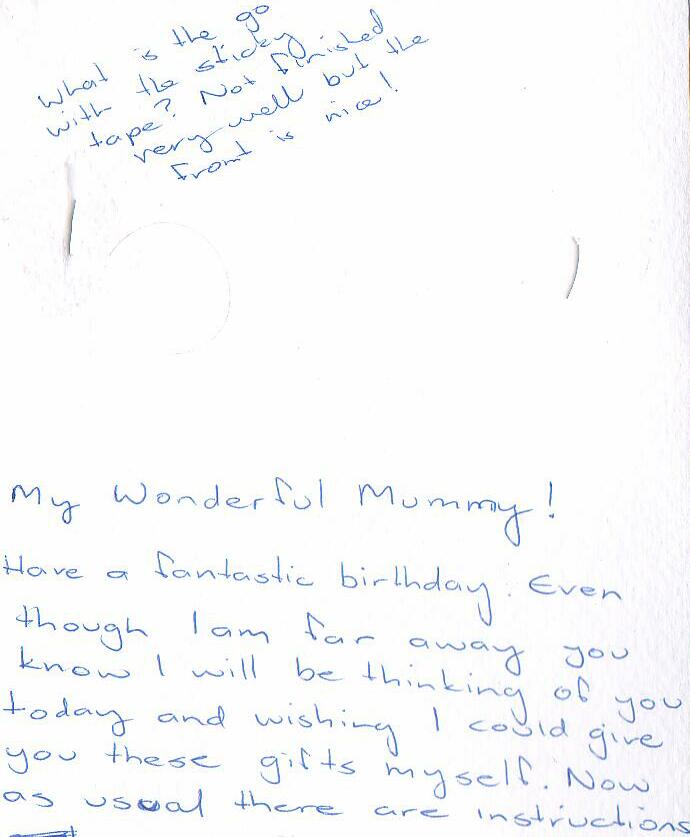 What is the go
with the sticky
tape? Not finished
very well but the
front is nice!
My Wonderful Mummy!
Have a fantastic birthday. Even
though I am far away you
know I will be thinking of you
today and wishing I could give
you these gifts myself. Now
as usual there are instructions